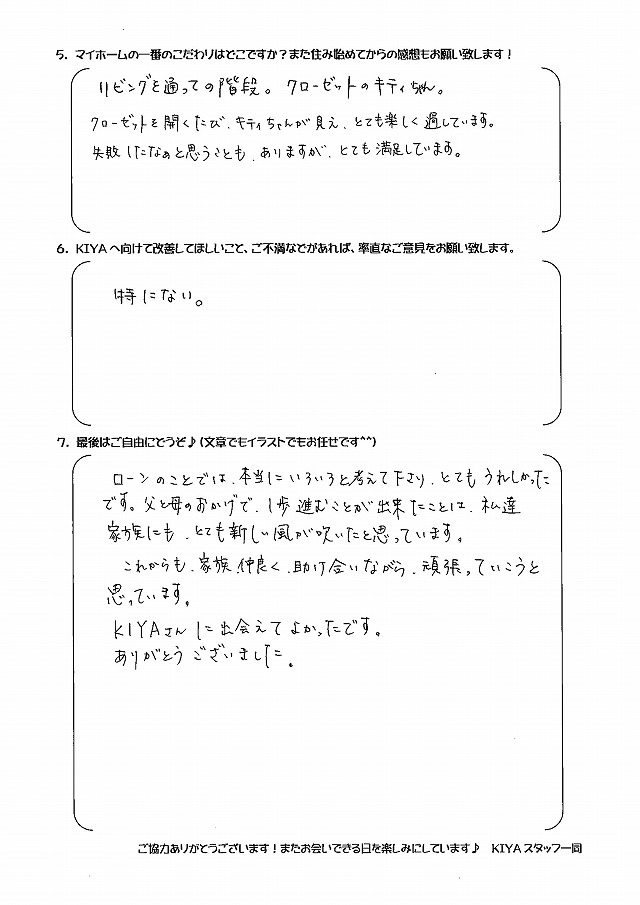 5. マイホームの一番のこだわりはどこですか？また住み始めてからの感想もお願い致します！
リビングを通っての階段。クローゼットのキティちゃん。
クローゼットを開くたび、キティちゃんが見え、とても楽しく過しています。
失敗したなぁと思うことも、ありますが、とても満足しています。
6. KIYAへ向けて改善してほしいこと、ご不満などがあれば、率直なご意見をお願い致します。
特にない。
7. 最後はご自由にどうぞ♪(文章でもイラストでもお任せです^^)
ローンのことでは、本当にいろいろと考えて下さり、とてもうれしかった
です。父と母のおかげで、1歩進むことが出来たことは、私達
家族にも、とても新しい風が吹いたと思っています。
これからも、家族仲良く、助け合いながら、頑張っていこうと
思っています。
KIYAさんに出会えてよかったです。
ありがとうございました。
ご協力ありがとうございます！またお会いできる日を楽しみにしています♪ KIYAスタッフ一同